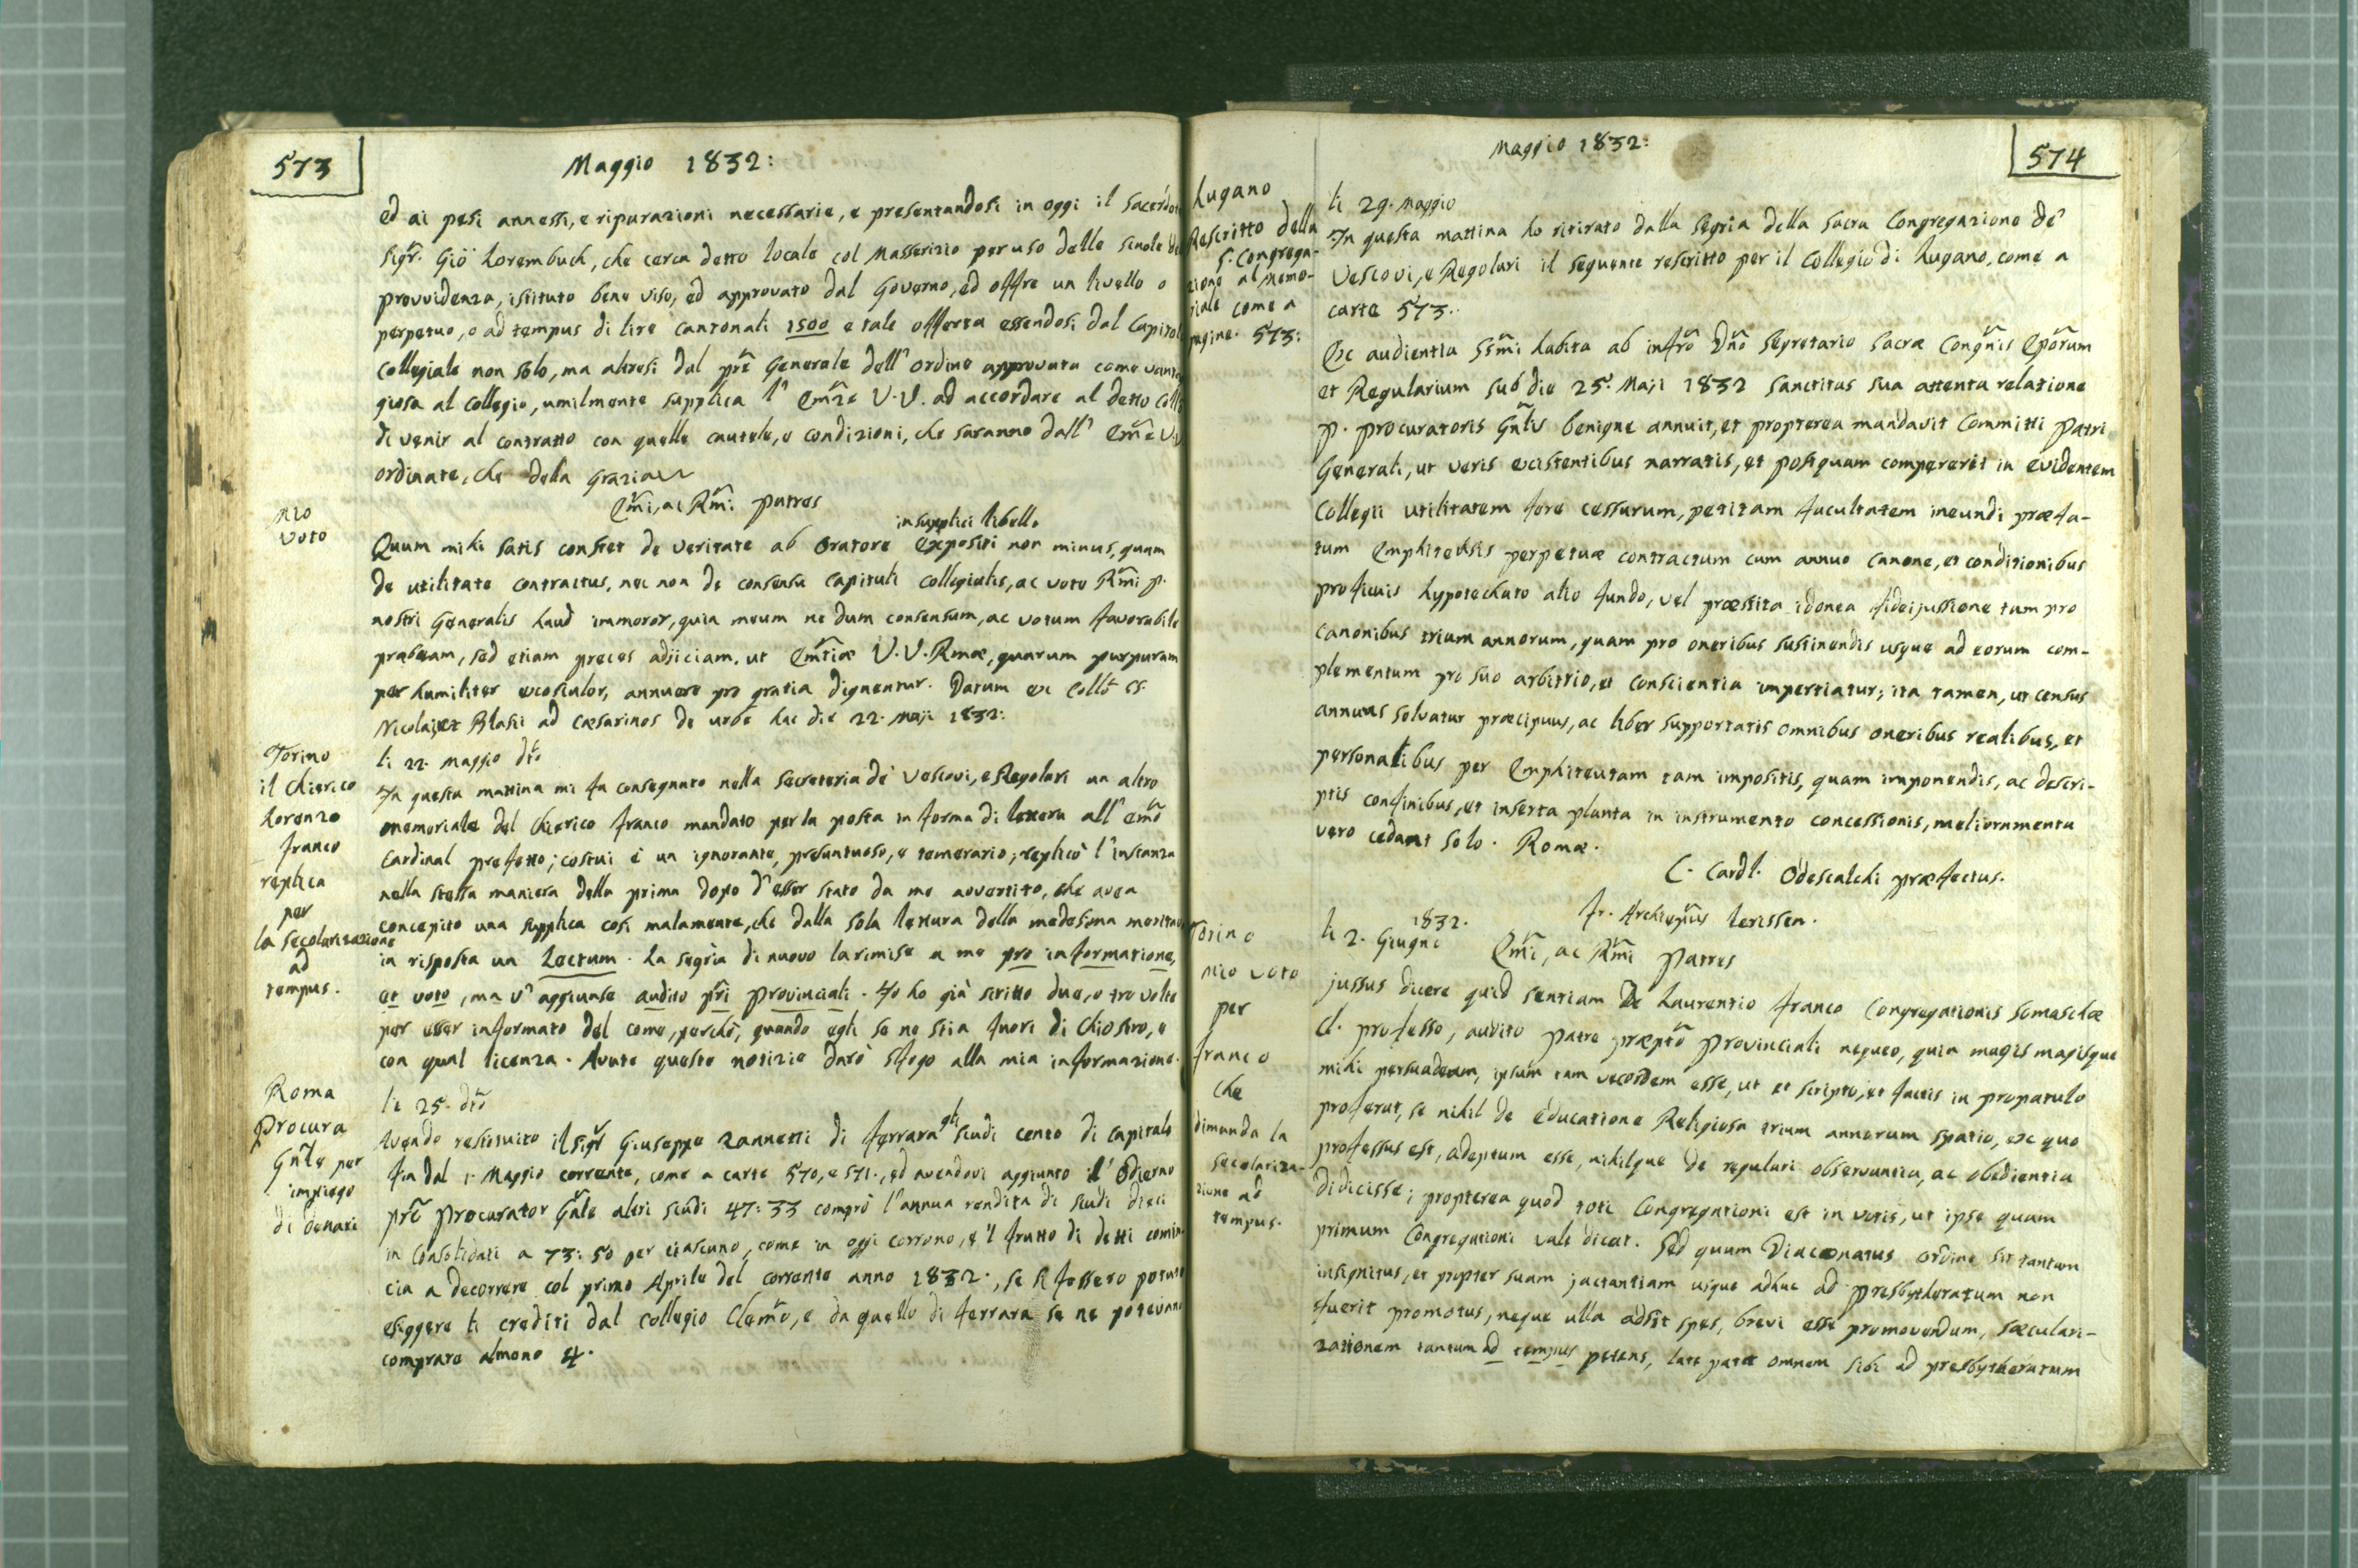 573
Maggio 1832:
ed ai pesi annessi, e riparazioni necessarie, e presentandosi in oggi il Sacerdote
Sigr̃. Giõ Lorembuch, che cerca detto locale col Masserizio per uso delle scuole di
provvidenza, istituto bene viso, ed approvato dal Governo, ed offre un livello o
perpetuo, o ad tempus di lire cantonali 1500 e tale offerta essendosi dal Capitolo
Collegiale non solo, ma altresi dal prẽ Generale dell' ordine approvata come vanta
giosa al Collegio, umilmente supplica l' Em̃ze V.V. ad accordare al detto Coll
di venir al contratto con quelle cautele, e condizioni, che saranno dall' Em̃e V.V
ordinate, che della Grazia
Em̃i, ac Rm̃i Patres
Mio
voto
in supplici libello
Quum mihi satis constet de veritate ab Oratore expositi non minus, quam
de utilitate contractus, nec non de consensu Capituli Collegialis, ac voto Rm̃i P.
nostri Generalis haud immoror, quin meum ne dum consensum, ac votum favorabile
præbeam, sed etiam preces adjiciam, ut Em̃tiæ V.V. Rmæ, quarum purpuram
per humiliter exosculor, annuere pro gratia dignentur. Datum ex Collõ SS.
Nicolai, et Blasii ad Cæsarinos de urbe hac die 22. Maji 1832:
Torino
il Chierico
Lorenzo
Franco
replica
per
la secolarizazione
ad
tempus.
li 22. Maggio dtõ
In questa mattina mi fu consegnato nella Secreteria de' Vescovi, e Regolari un altro
memoriale del Chierico Franco mandato per la posta in forma di lettera all' Em̃o
Cardinal prefetto; costui è un ignorante, presuntuoso, e temerario; replicò l' instanza
nella stessa maniera della prima dopo d' esser stato da me avvertito, che avea
concepito una supplica così malamente, che dalla sola lettura della medesima meritava
in risposta un Lectum. La segria di nuovo la rimise a me pro informatione,
et voto, ma v' aggiunse audito pr̃i Provinciali. Io ho già scritto due, o tre volte
per esser informato del come, perchè, quando egli se ne stia fuori di Chiostro, e
con qual licenza. Avute queste notizie darò sfogo alla mia informazione.
Roma
Procura
Gñle per
impiego
di denari
li 25. dtõ
gli
Avendo restituito il Sigr̃ Giuseppe Zannetti di Ferrara scudi cento di capitale
fin dal 1. Maggio corrente, come a carte 570, e 571., ed avendovi aggiunto l' Odierno
prẽ Procurator Gñle altri scudi 47:33 comprò l' annua rendita di scudi dieci
in Consolidati a 73:50 per ciascuno, come in oggi corrono, e 'l frutto di detti comin
cia a decorrere col primo Aprile del corrente anno 1832., se si fossero potuto
esiggere li crediti dal Collegio Clem̃o, e da quello di Ferrara se ne potevano
comprare almeno 4.
Maggio 1832:
574
Lugano
Rescritto della
S. Congrega-
zione al Memo-
riale come a
pagine 573:
li 29. Maggio
In questa mattina ho ritirato dalla Segria della Sacra Congregazione de'
Vescovi, e Regolari il seguente rescritto per il Collegio di Lugano, come a
carte 573.
Ex audientia SSm̃i habita ab infrõ Dñõ Segretario Sacræ Congñis Epõrum
et Regularium sub die 25. Maji 1832 Sanctitas sua attenta relatione
P. Procuratoris Gñlis benigne annuit, et propterea mandavit Committi Patri
Generali, ut veris existentibus narratis, et postquam compererit in evidentem
Collegii utilitatem fore cessurum, petitam facultatem ineundi præfa-
tum Emphiteusis perpetuæ contractum cum annuo canone, et conditionibus
proficuis hypotechato alio fundo, vel præstita idonea fideijussione tum pro
canonibus trium annorum, quam pro oneribus sustinendis usque ad eorum com-
plementum pro suo arbitrio, et conscientia impertiatur; ita tamen, ut census
annuus solvatur præcipuus, ac liber supportatis omnibus oneribus realibus, et
personalibus per Emphiteutam tam impositis, quam imponendis, ac descri-
ptis confinibus, et inserta planta in instrumento concessionis, melioramenta
vero cedant solo. Romæ.
C. Cardl. Odescalchi præfectus.
Fr. Archiepũs
Torino
Mio voto
per
Franco
che
dimanda la
secolariza-
zione ad
tempus.
li 2. Giugno 1832.
Em̃i, ac Rm̃i Patres
jussus dicere quid sentiam de Laurentio Franco Congregationis Somaschæ
Cl. professo, audito Patre præptõ Provinciali nequeo, quin magis magisque
mihi persuadeam, ipsum tam vecordem esse, ut et scripto, et factis in propatulo
proferat, se nihil de educatione Religiosa trium annorum spatio, ex quo
professus est, adeptum esse, nihilque de regulari observantia, ac obedientia
didicisse; propterea quod toti Congregationi est in votis, ut ipse quam
primum Congregationi vale dicat. Sed quum Diaconatus ordine sit tantum
insignitus, et propter suam jactantiam usque adhuc ad Presbytheratum non
fuerit promotus, neque ulla adsit spes, brevi esse promovendum, sæculari-
zationem tantum ad tempus petens, late patet omnem sibi ad presbytheratum